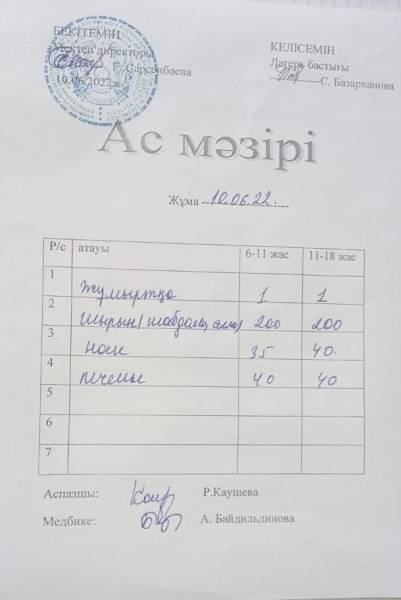 БЕКІТЕМІН
Мектеп директоры
Г. Сарсенбаева
10.06.2022ж
КЕЛІСЕМІН
Лагерь бастығы
С. Базарханова
Ас мәзірі
Жұма 10.06.22.
Р/с атауы 6-11 жас 11-18 жас
1 Жұмыртқа 1 1
2 Шырын (шабдалы, алма) 200 200
3 нан 35 40
4 печенье 40 40
5
6
7
Аспазшы: Р.Каушева
Медбике: А. Байдильдинова